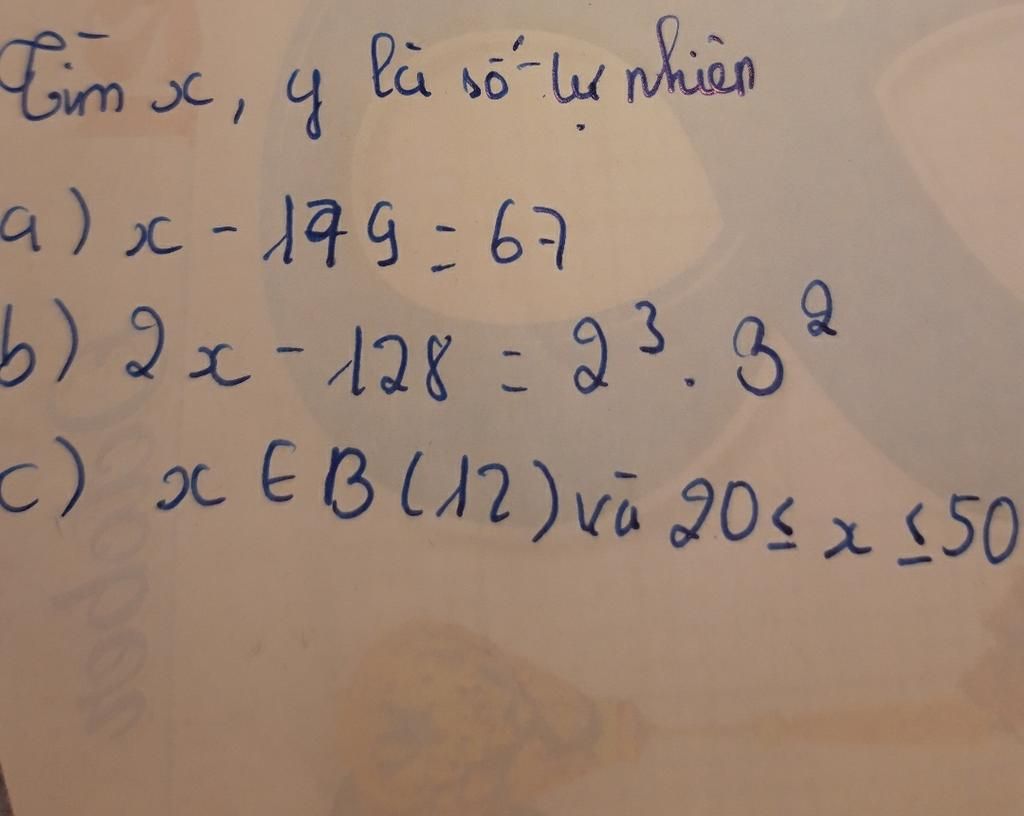 Tìm x, y là số tự nhiên
a) x - 179 = 67
b) 2x - 128 = 2³ . 3²
c) x ∈ B(12) và 20 ≤ x ≤ 50